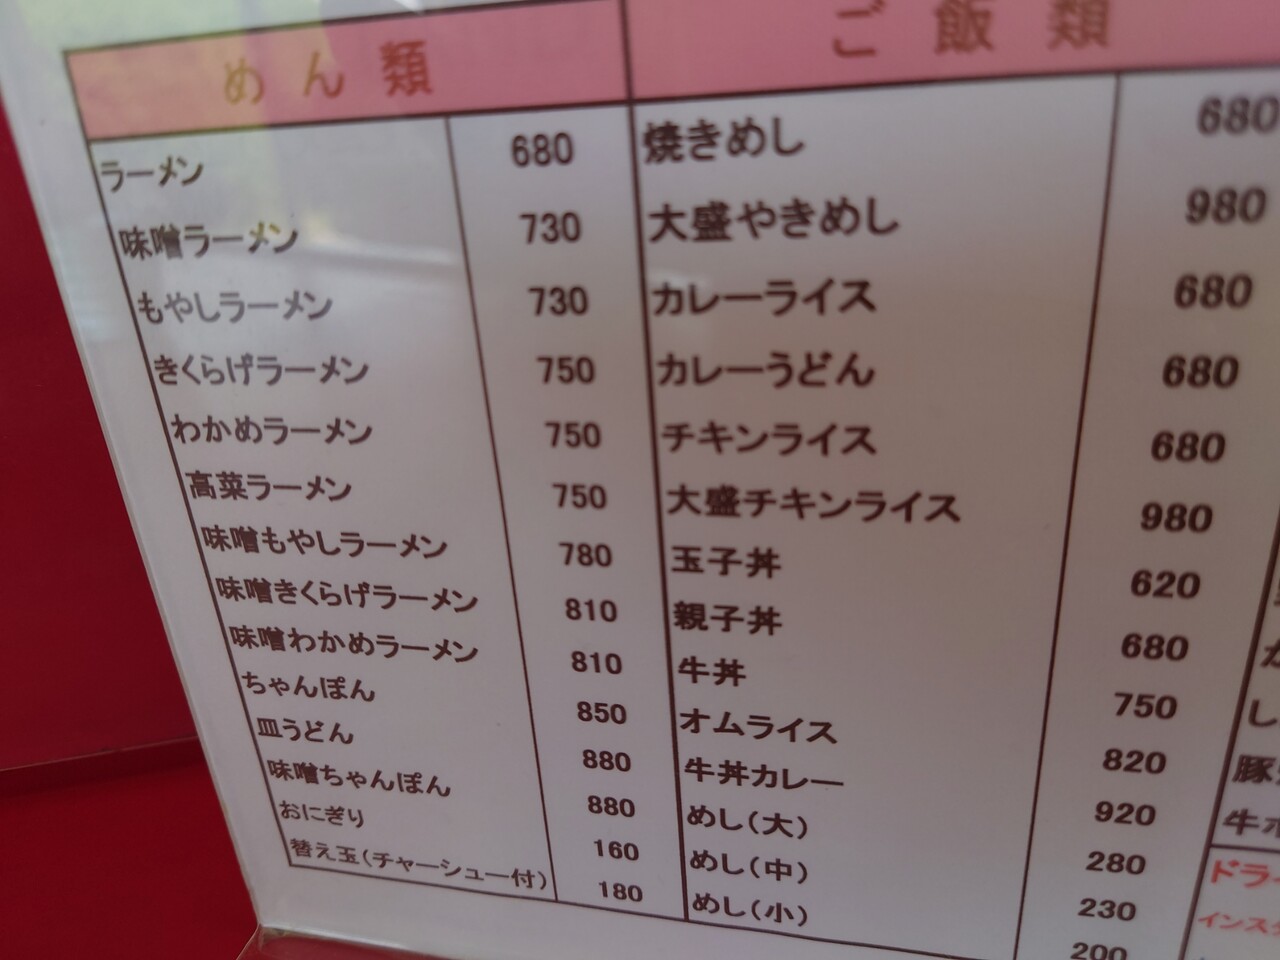 めん類
ラーメン 680
味噌ラーメン 730
もやしラーメン 730
きくらげラーメン 750
わかめラーメン 750
高菜ラーメン 750
味噌もやしラーメン 780
味噌きくらげラーメン 810
味噌わかめラーメン 810
ちゃんぽん 850
皿うどん 880
味噌ちゃんぽん 880
おにぎり 160
替え玉(チャーシュー付) 180
ご飯類
焼きめし 680
大盛やきめし 980
カレーライス 680
カレーうどん 680
チキンライス 680
大盛チキンライス 980
玉子丼 620
親子丼 680
牛丼 750
オムライス 820
牛丼カレー 920
めし(大) 280
めし(中) 230
めし(小) 200
し
豚
牛ホ
ドラー
インスタ